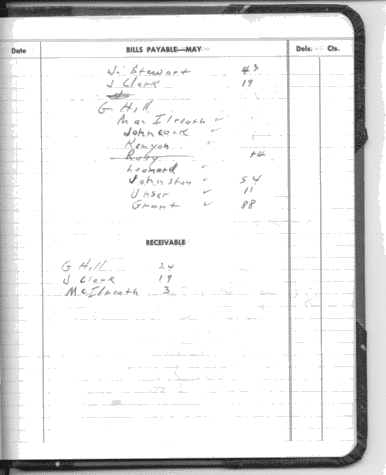 Date BILLS PAYABLE—MAY Dols. Cts.
J. Stewart 43
J Clark 19
G Hill
MacIlreath ✓
Johncock ✓
Kenyon ✓
Ruby 14
Leonard ✓
Johnston ✓ 54
Unser ✓ 11
Grant ✓ 88
RECEIVABLE
G Hill 24
J Clark 19
McIlreath 3